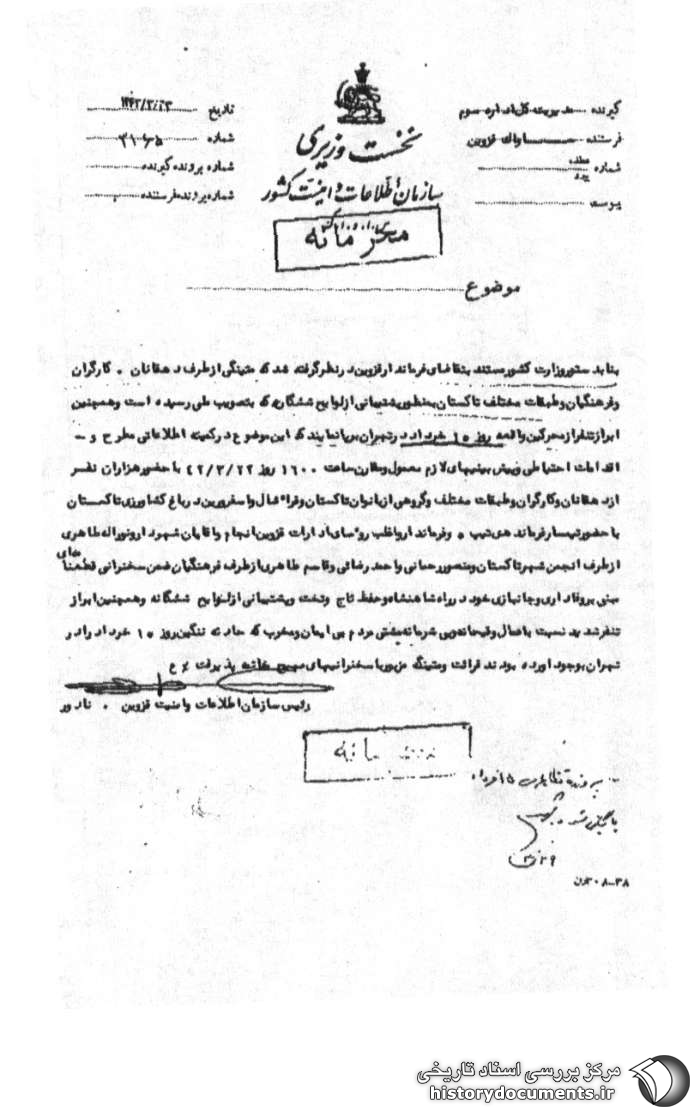 گیرنده مدیریت کل اداره سوم
فرستنده ساواک قزوین
شماره
پیوست
نخست وزیری
سازمان اطلاعات و امنیت کشور
محرمانه
تاریخ ۱۳۴۲/۳/۲۳
شماره
شماره پرونده گیرنده
شماره پرونده فرستنده
موضوع
بنا بدستور وزارت کشور مستند بتقاضای فرماندار قزوین در نظر گرفته شد که متینگی از طرف دهقانان . کارگران
و فرهنگیان و طبقات مختلف تاکستان بمنظور پشتیبانی از لوایح ششگانه که بتصویب ملی رسیده است و همچنین
ابراز تنفر از محرکین واقعه روز ۱۵ خرداد در تهران برپا نمایند که این موضوع در کمیته اطلاعاتی مطرح و –
اقدامات احتیاطی و پیش بینیهای لازم معمول و مقارن ساعت ۱۶۰۰ روز ۴۲/۳/۲۲ با حضور هزاران نفر
از دهقانان و کارگران و طبقات مختلف و گروهی از بانوان تاکستان و قراء شال و اسفرورین در باغ کشاورزی تاکستان
با حضور تیمسار فرماندهی تیپ . و فرماندار و اغلب روسای ادارات قزوین انجام و آقایان شهردار و نوراله طاهری
از طرف انجمن شهر تاکستان و منصور رحمانی و احمد رضائی و قاسم طاهری از طرف فرهنگیان ضمن سخنرانی قطعنامه های
مبنی بر وفاداری و جانبازی خود در راه شاهنشاه و حفظ تاج و تخت و پشتیبانی از لوایح ششگانه و همچنین ابراز
تنفر شدید نسبت باعمال وقیحانه و بی شرمانه مشتی مردم بی ایمان و مخرب که حادثه ننگین روز ۱۵ خرداد را در
تهران بوجود آورده بودند قرائت و متینگ مزبور با سخنرانیهای مهیج خاتمه پذیرفت ع
رئیس سازمان اطلاعات و امنیت قزوین . نادور
محرمانه
۱۵ خرداد
بایگانی شود
مرکز بررسی اسناد تاریخی
historydocuments.ir